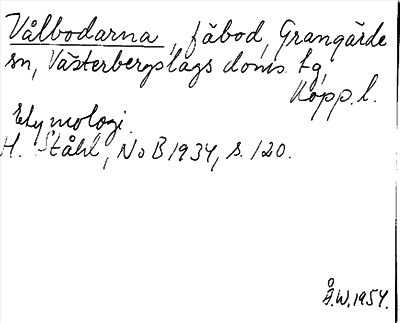 Vålbodarna, fäbod, Grangärde
sn, Västerbergslags doms. tg,
Kopp. l.
Etymologi.
H. Ståhl, NoB 1934, s. 120.
Å.W. 1954.